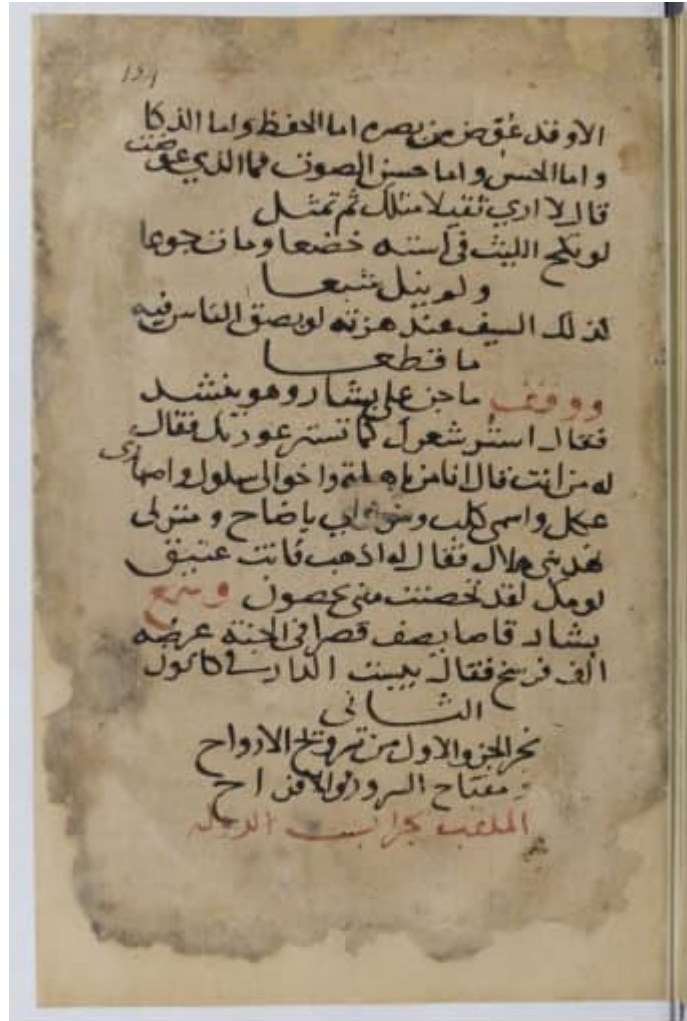 ١٥٨
الا وقد عوض من بصره اما الحفظ واما الذكا
واما الحسن واما حسن الصوت فما الذي عوضت
قال لا اري ثقيلا مثلك ثم تمثل
لو نكح الليث في استه خضعا ومات جوعا
ولم ينل شبعا
كذلك السيف عند هزته لو بصق الناس فيه
ما قطعا
ووقف ماجن على بشار وهو ينشد
فقال استر شعرك كما تستر عورتك فقال
له من انت قال انا من باهلة واخوالي سلول واصهاري
عكل واسمي كلب ومولدي باضاح ومنزلي
نهر بني هلال فقال له اذهب فانت عتيق
لومك لقد تحصنت مني بحصون وسمع
بشار قاصا يصف قصرا في الجنة عرضه
الف فرسخ فقال بيست الدار في كانون
الثاني
نجز الجزو الاول من ترويح الارواح
ومفتاح السرور والافراح
الملقب بجراب الدوله